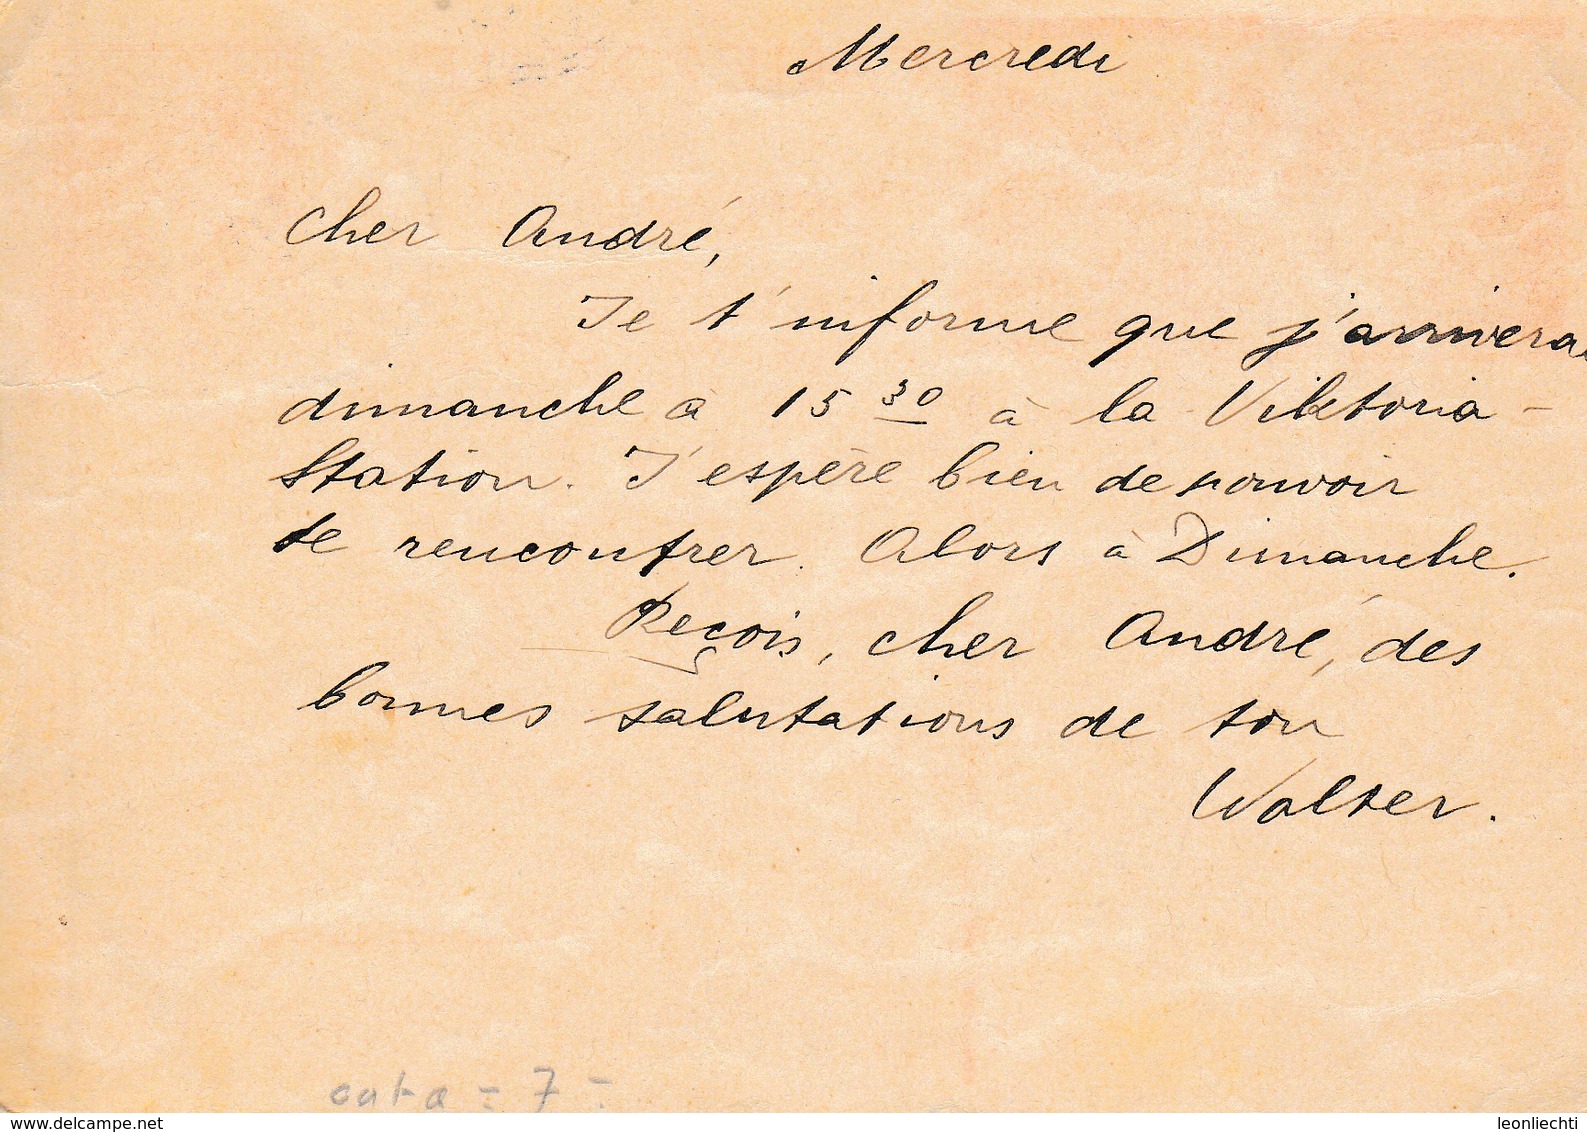 Mercredi
Cher André,
Je t'informe que j'arriverai
dimanche à 15 30 à la Viktoria-
Station. J'espère bien de pouvoir
te rencontrer. Alors à Dimanche.
Reçois, cher André, des
bonnes salutations de ton
Walter.
cata = 7 =
www.delcampe.net
leonliechti